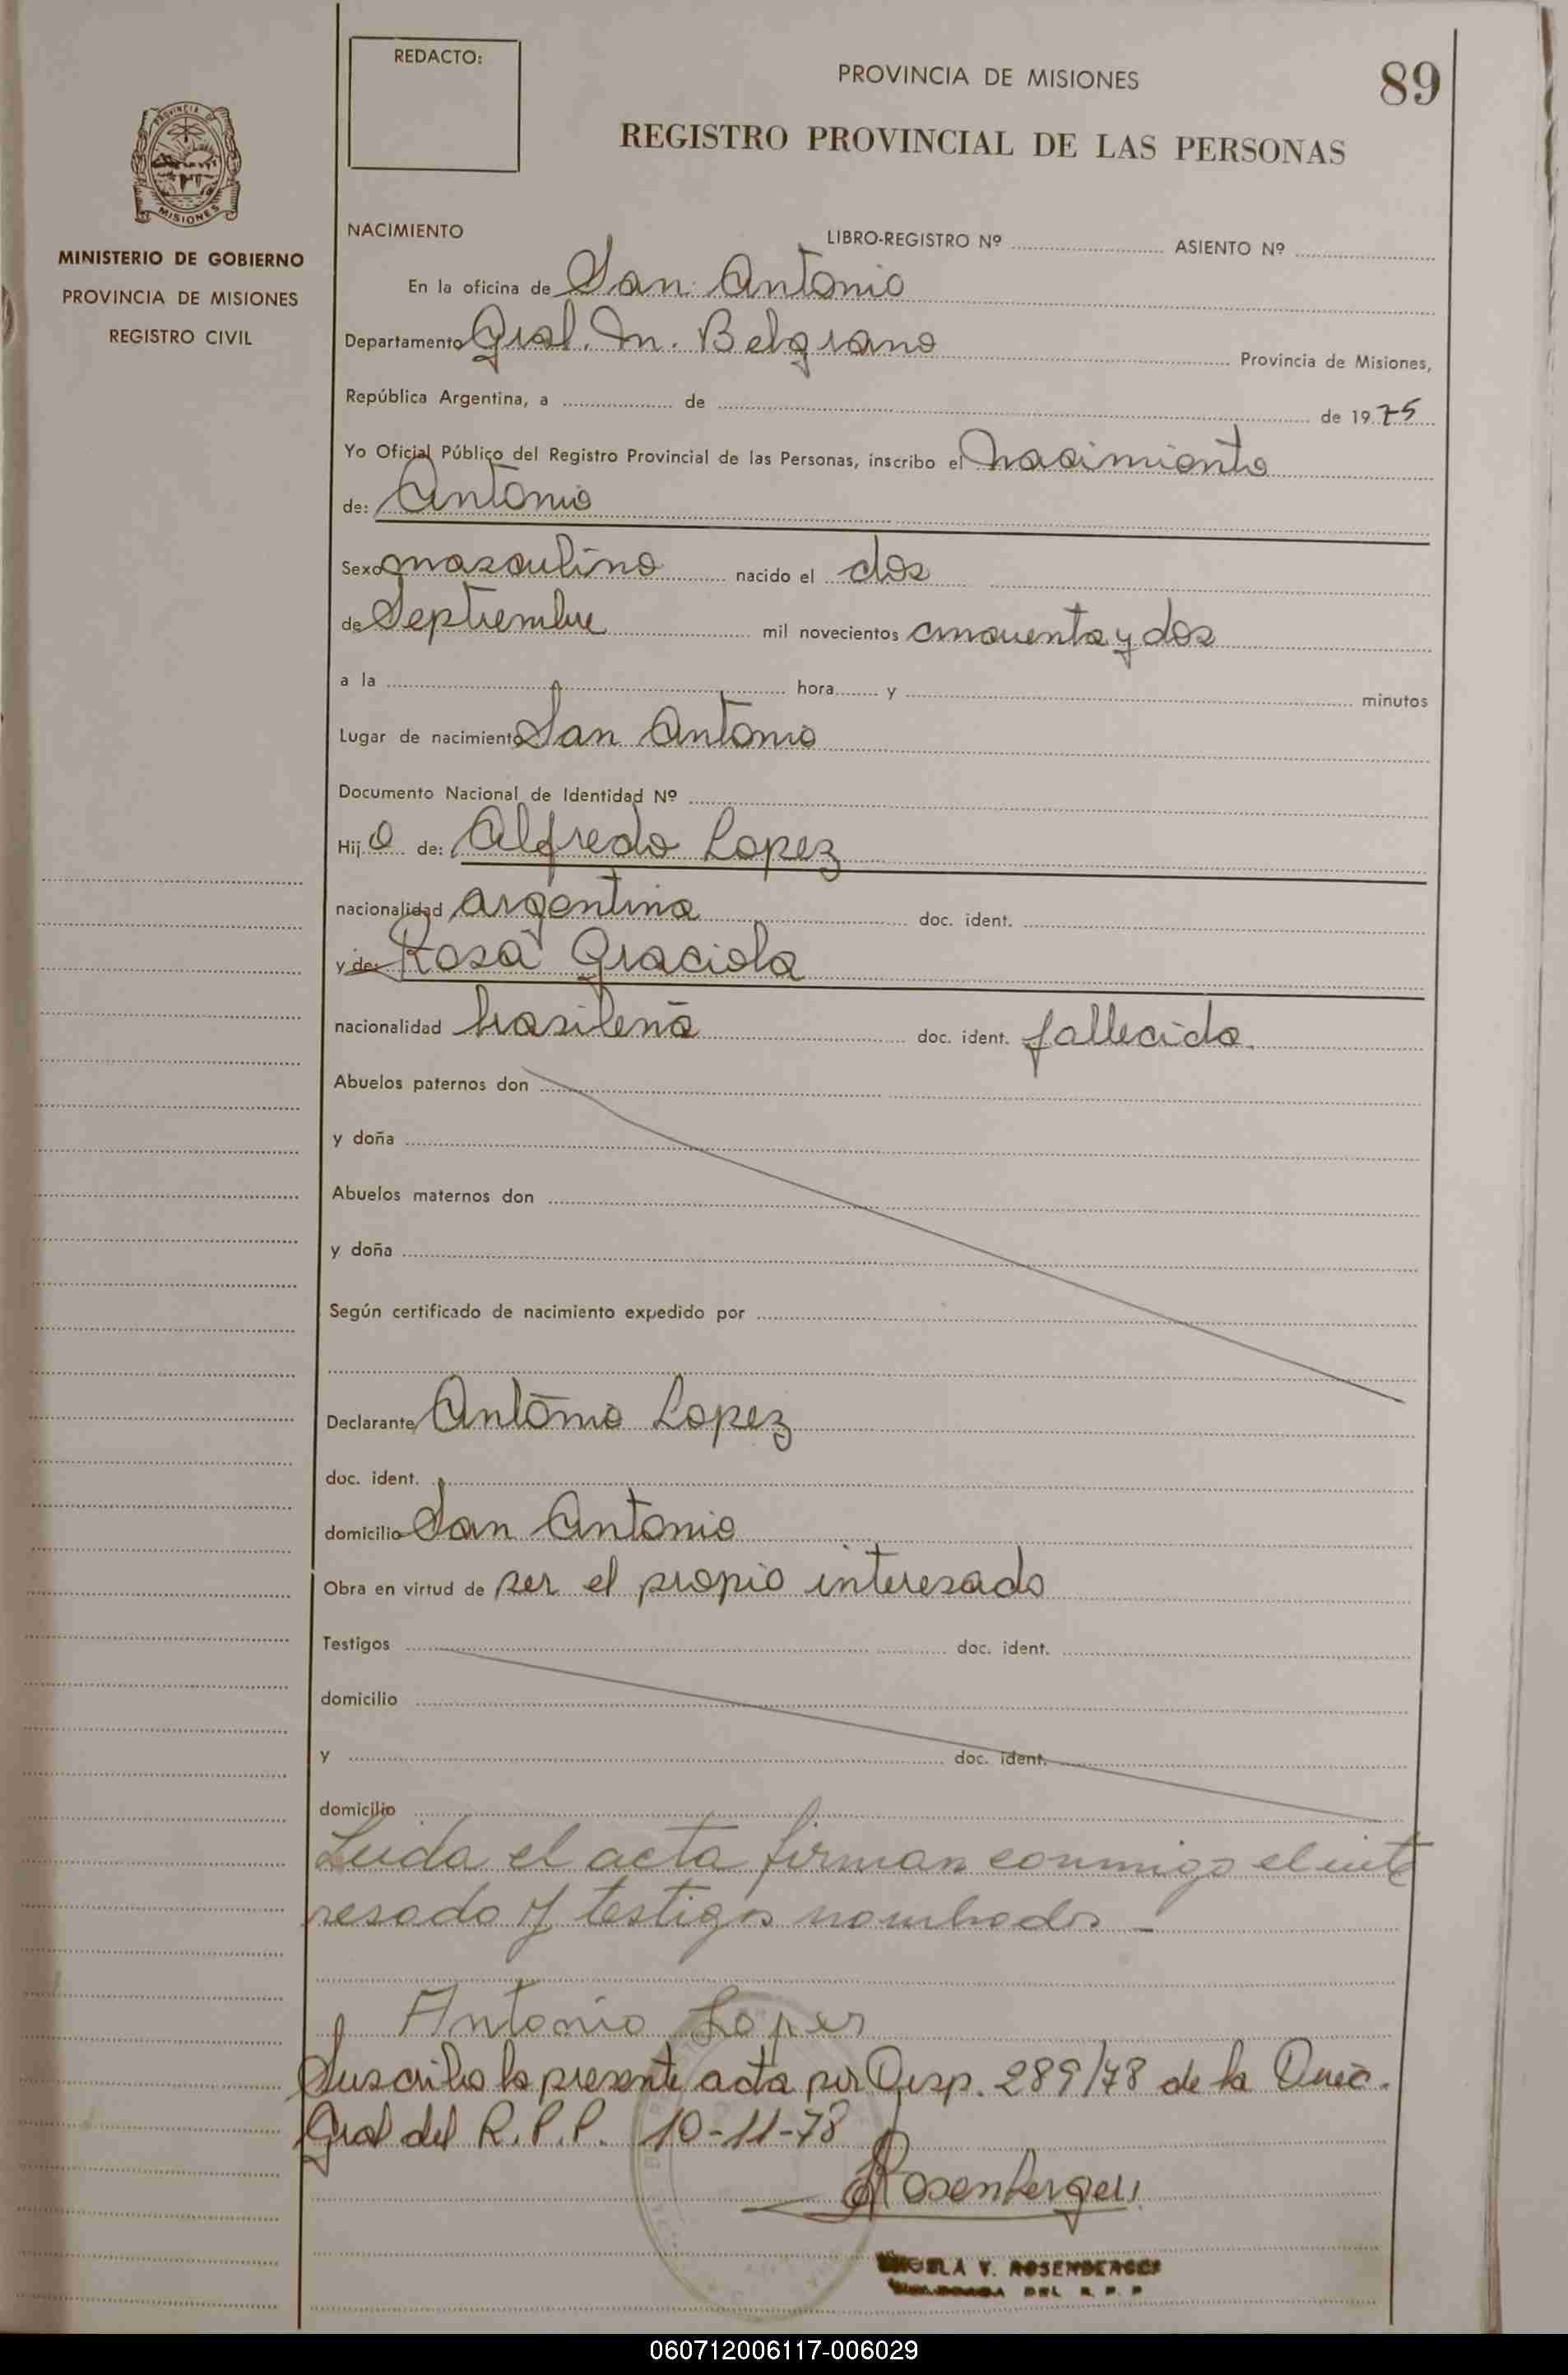 REDACTO:
PROVINCIA DE MISIONES
89
REGISTRO PROVINCIAL DE LAS PERSONAS
PROVINCIA DE
MISIONES
MINISTERIO DE GOBIERNO
PROVINCIA DE MISIONES
REGISTRO CIVIL
NACIMIENTO LIBRO-REGISTRO Nº ASIENTO Nº
En la oficina de San Antonio
Departamento Gral. M. Belgrano Provincia de Misiones,
República Argentina, a de de 1975
Yo Oficial Público del Registro Provincial de las Personas, inscribo el nacimiento
de: Antonio
Sexo masculino nacido el dos
de Septiembre mil novecientos cincuenta y dos
a la hora y minutos
Lugar de nacimiento San Antonio
Documento Nacional de Identidad Nº
Hijo de: Alfredo Lopez
nacionalidad argentina doc. ident.
y de: Rosa Graciela
nacionalidad brasileña doc. ident. fallecida.
Abuelos paternos don
y doña
Abuelos maternos don
y doña
Según certificado de nacimiento expedido por
Declarante Antonio Lopez
doc. ident.
domicilio San Antonio
Obra en virtud de ser el propio interesado
Testigos doc. ident.
domicilio
y doc. ident.
domicilio
Leida el acta firman conmigo el inte
resado y testigos nombrados -
Antonio Lopez
Suscribo la presente acta por Disp. 289/78 de la Direc.
Gral del R.P.P. 10-11-78
Rosenberger
V. ROSENBERGER
DEL R. P. P
060712006117-006029